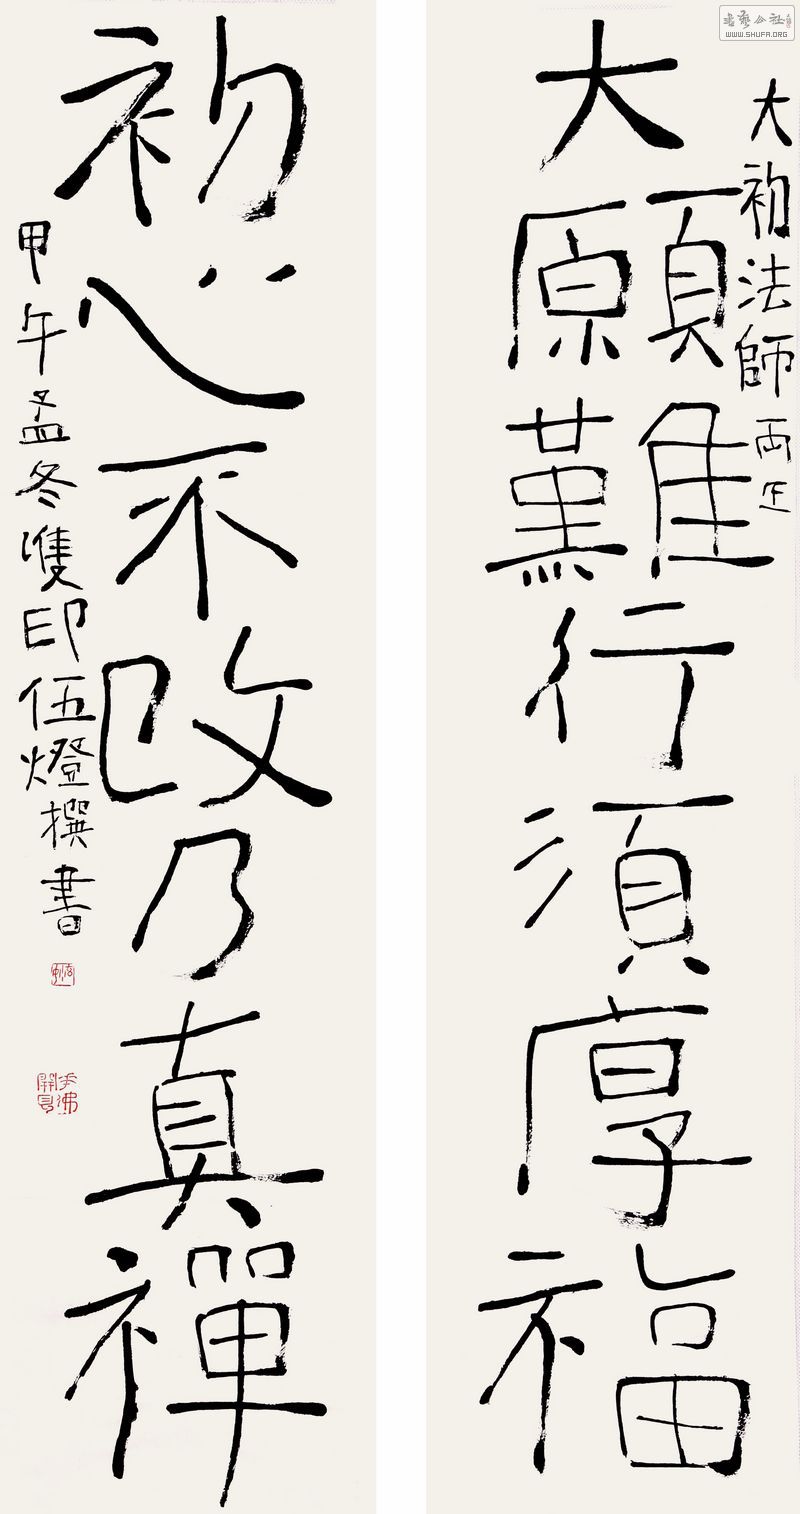 書藝公社
WWW.SHUFA.ORG
大初法師両正
大願難行須厚福
初心不改乃真禪
甲午孟冬雙印伍燈撰書